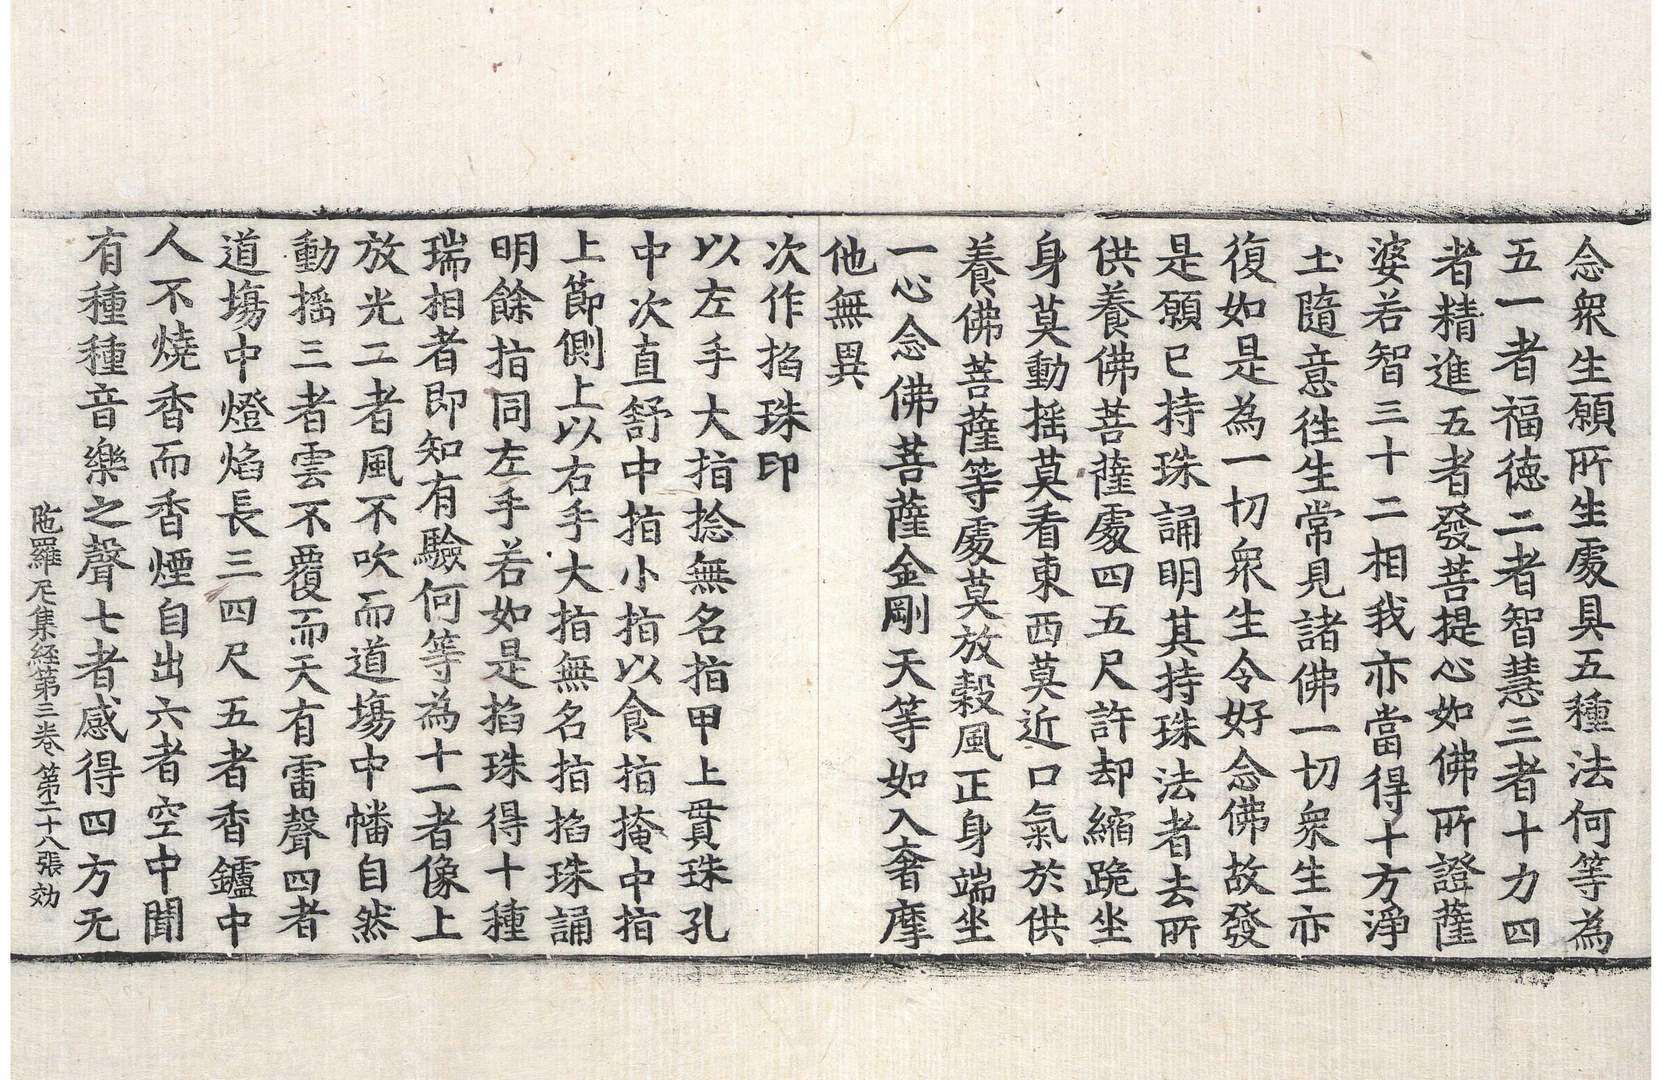 念衆生願所生處具五種法何等為
五一者福德二者智慧三者十力四
者精進五者發菩提心如佛所證薩
婆若智三十二相我亦當得十方淨
土隨意徃生常見諸佛一切衆生亦
復如是為一切衆生令好念佛故發
是願已持珠誦明其持珠法者去所
供養佛菩薩處四五尺許却縮跪坐
身莫動摇莫看東西莫近口氣於供
養佛菩薩等處莫放穀風正身端坐
一心念佛菩薩金剛天等如入奢摩
他無異
次作掐珠印
以左手大指捻無名指甲上貫珠孔
中次直舒中指小指以食指掩中指
上節側上以右手大指無名指掐珠誦
明餘指同左手若如是掐珠得十種
瑞相者即知有驗何等為十一者像上
放光二者風不吹而道塲中幡自然
動摇三者雲不覆而天有雷聲四者
道塲中燈焰長三四尺五者香鑪中
人不燒香而香煙自出六者空中聞
有種種音樂之聲七者感得四方无
陁羅尼集經第三卷 第二十八張 効